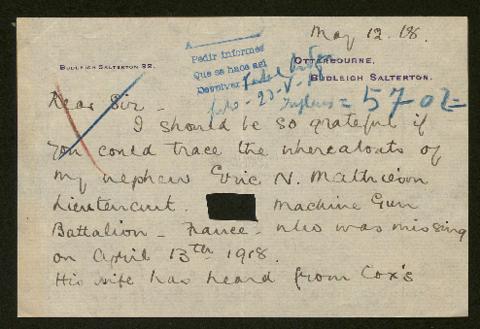 May 12. 18.
BUDLEIGH SALTERTON 92.
OTTERBOURNE,
BUDLEIGH SALTERTON.
A
Pedir informes
Que se hace así
Devolver
= 5702=
Dear Sir -
I should be so grateful if
you could trace the whereabouts of
my nephew Eric N. Mathieson
Lieutenant. Machine Gun
Battalion - France - who was missing
on April 13th 1918.
His wife has heard from Cox's